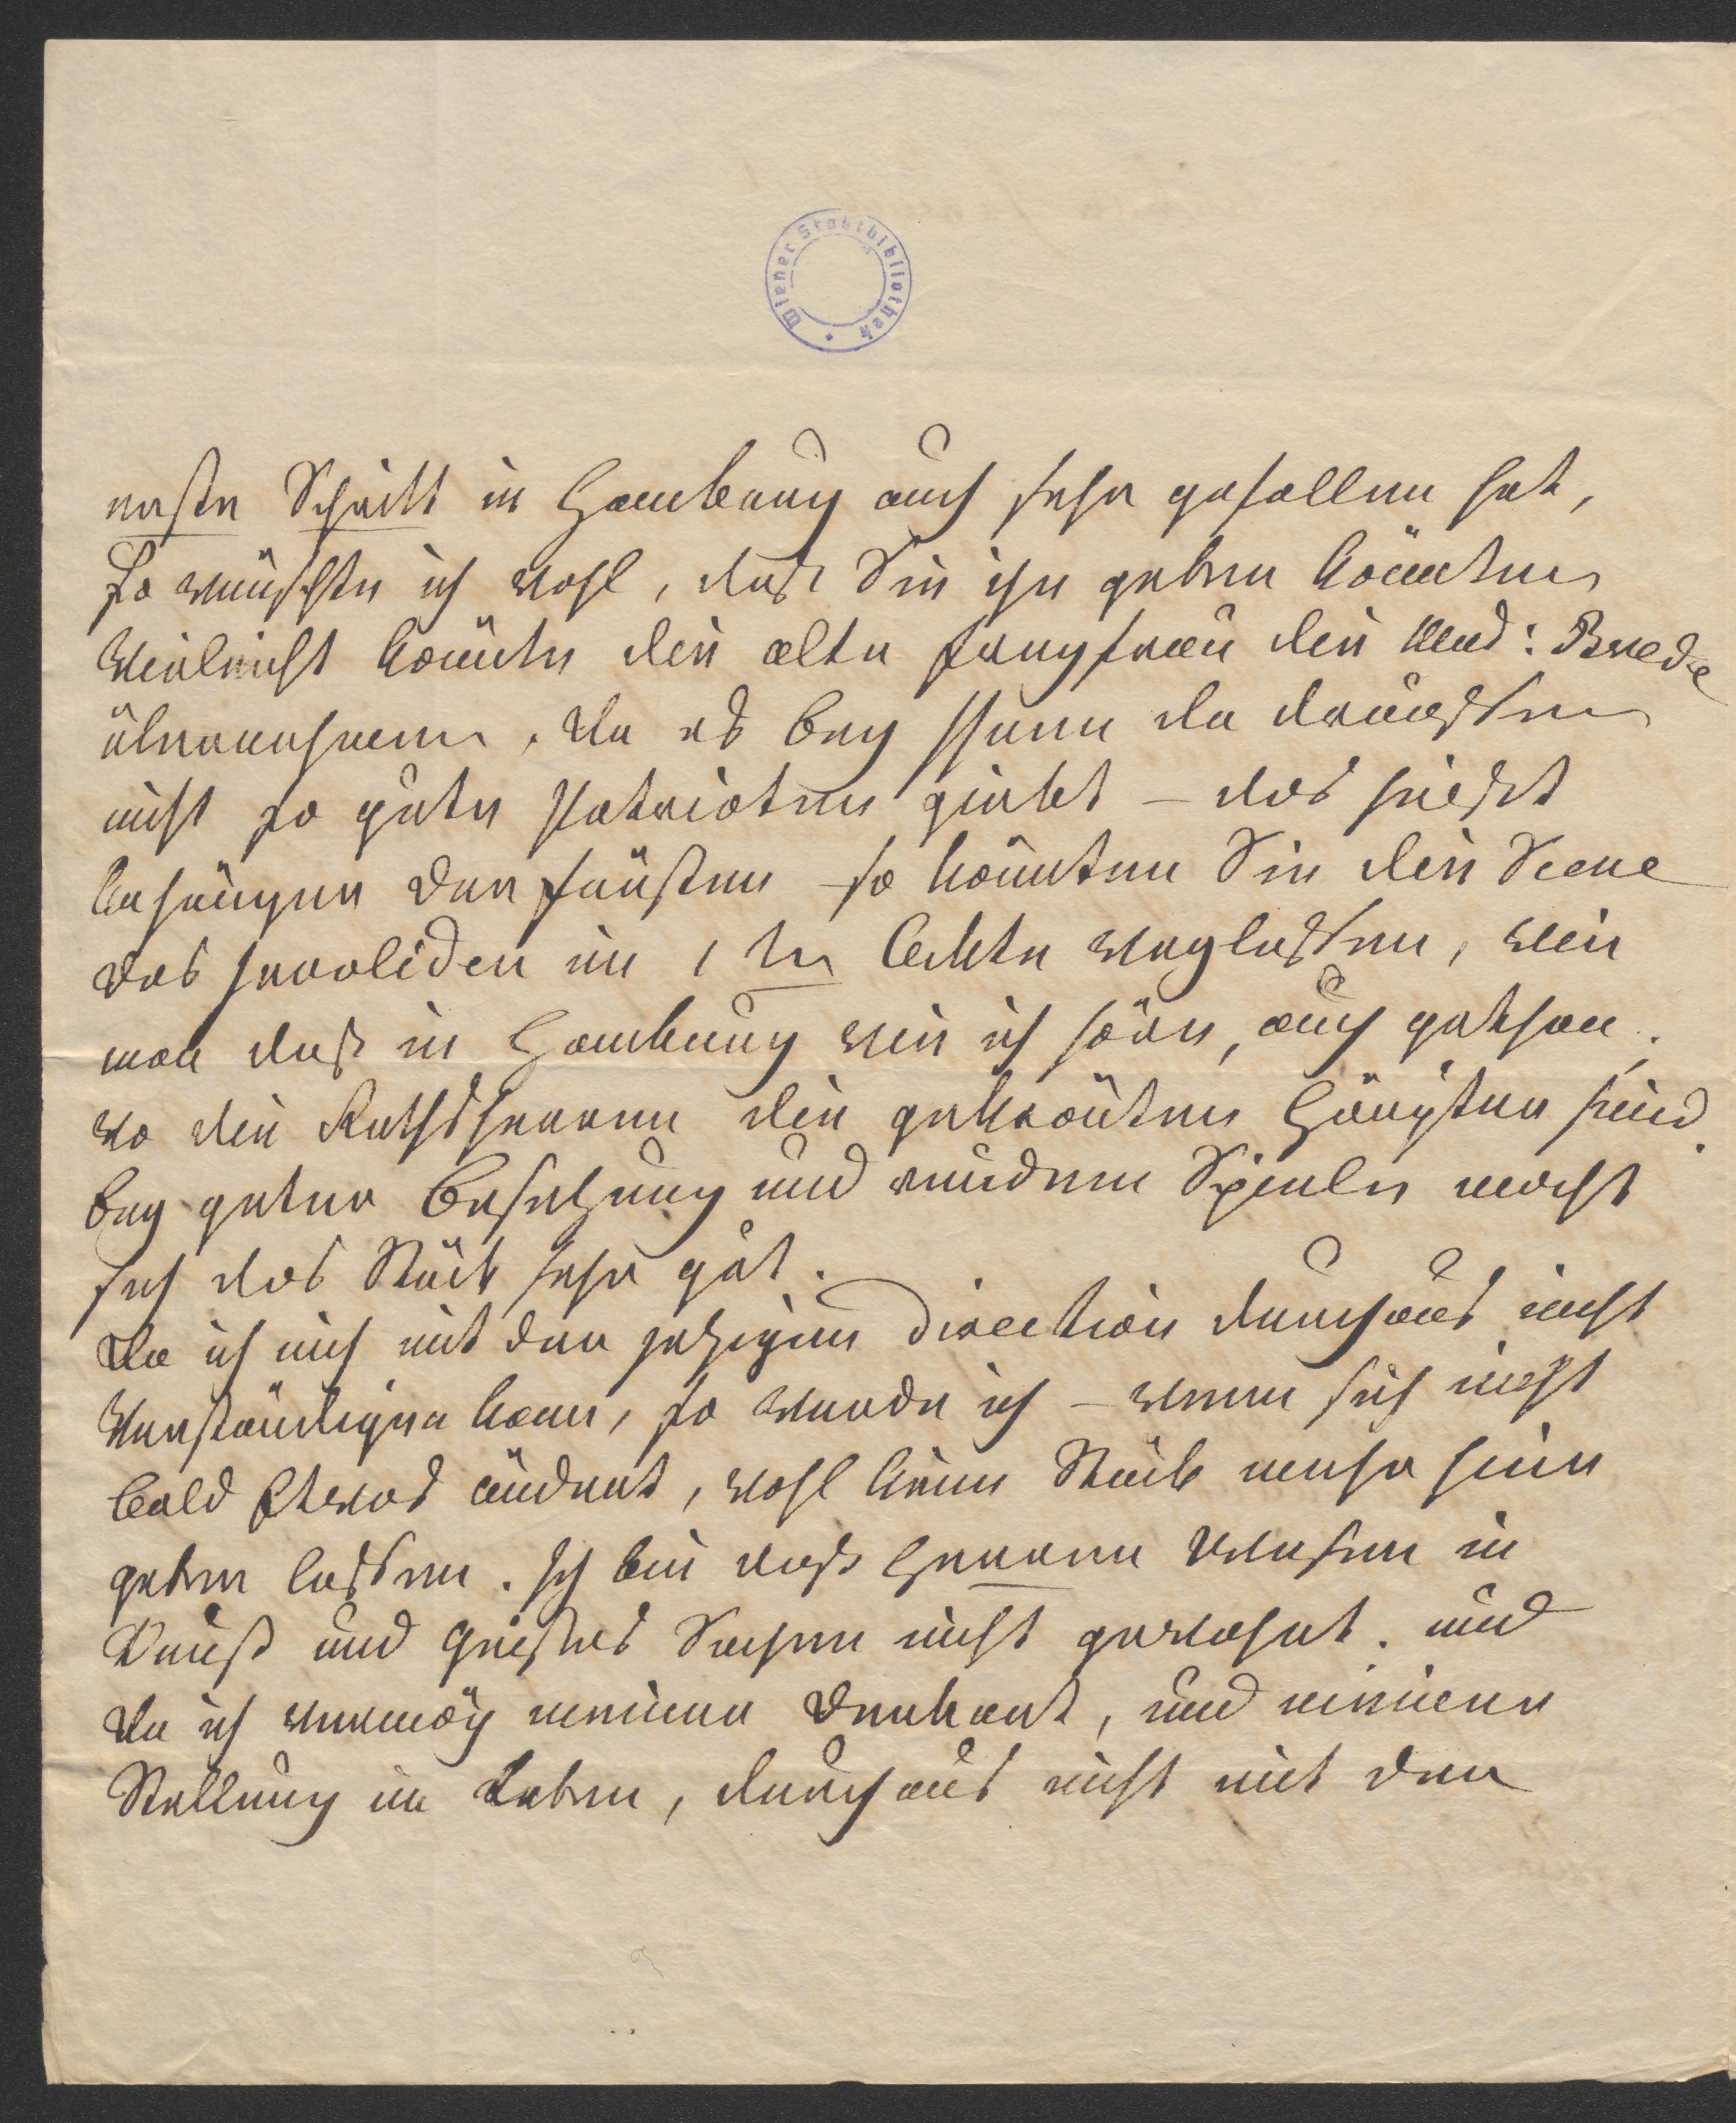 Wiener Stadtbibliothek
erste Schritt in Hamburg auch sehr gefallen hat,
so wünschte ich wohl, daß Sie ihn geben könnten
Vieleicht könnte die alte Jungfrau die Mad: Brede
übernehmen, da es bey Ihnen da draußen
nicht so gute Patrioten giebt – das heißt
Anhänger der Fürsten – so könnten Sie die Scene
des Invaliden im 1 ten Ackte weglassen, wie
man daß in Hamburg wie ich höre, auch gethan,
wo die Rathsherren die gekrönten Häupter sind.
bey guter Besetzung und rundem Spiele macht
sich das Stück sehr gut.
Da ich mich mit der jetzigen Direction durchaus nicht
Verständigen kann, so werde ich – wenn sich nicht
bald Etwas ändert, wohl keine Stück mehr hier
geben lassen. Ich bin daß Herren Wesen in
Kunst und Geistes Sachen nicht gewohnt. und
da ich vermög meiner Denkart, und meiner
Stellung im Leben, durchaus nicht mit der